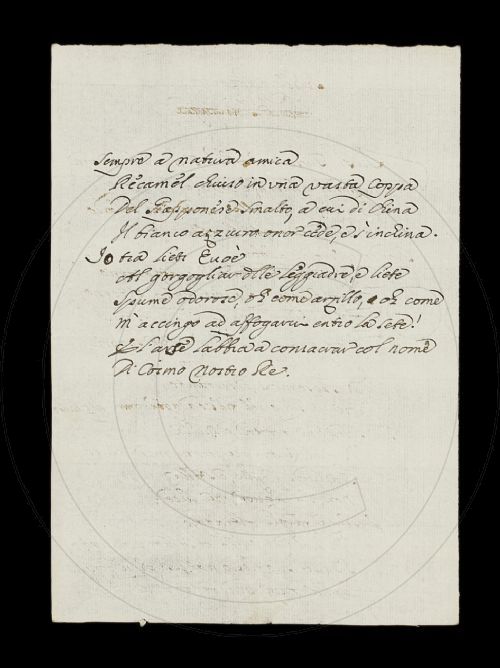 Sempre a natura amica
Recamel chiuso in una vasta Coppa
Del Giapponese smalto, a cui di China
Il bianco azzurro onor cede, e s'inchina.
Io tra lieti Evoè
Al gorgogliar delle leggiadre, e liete
Spume odorose, oh come brillo, oh come
M'accingo ad affogarvi entro la sete!
E l'arse labbia a consacrar col nome
Di Cosmo nostro Re.